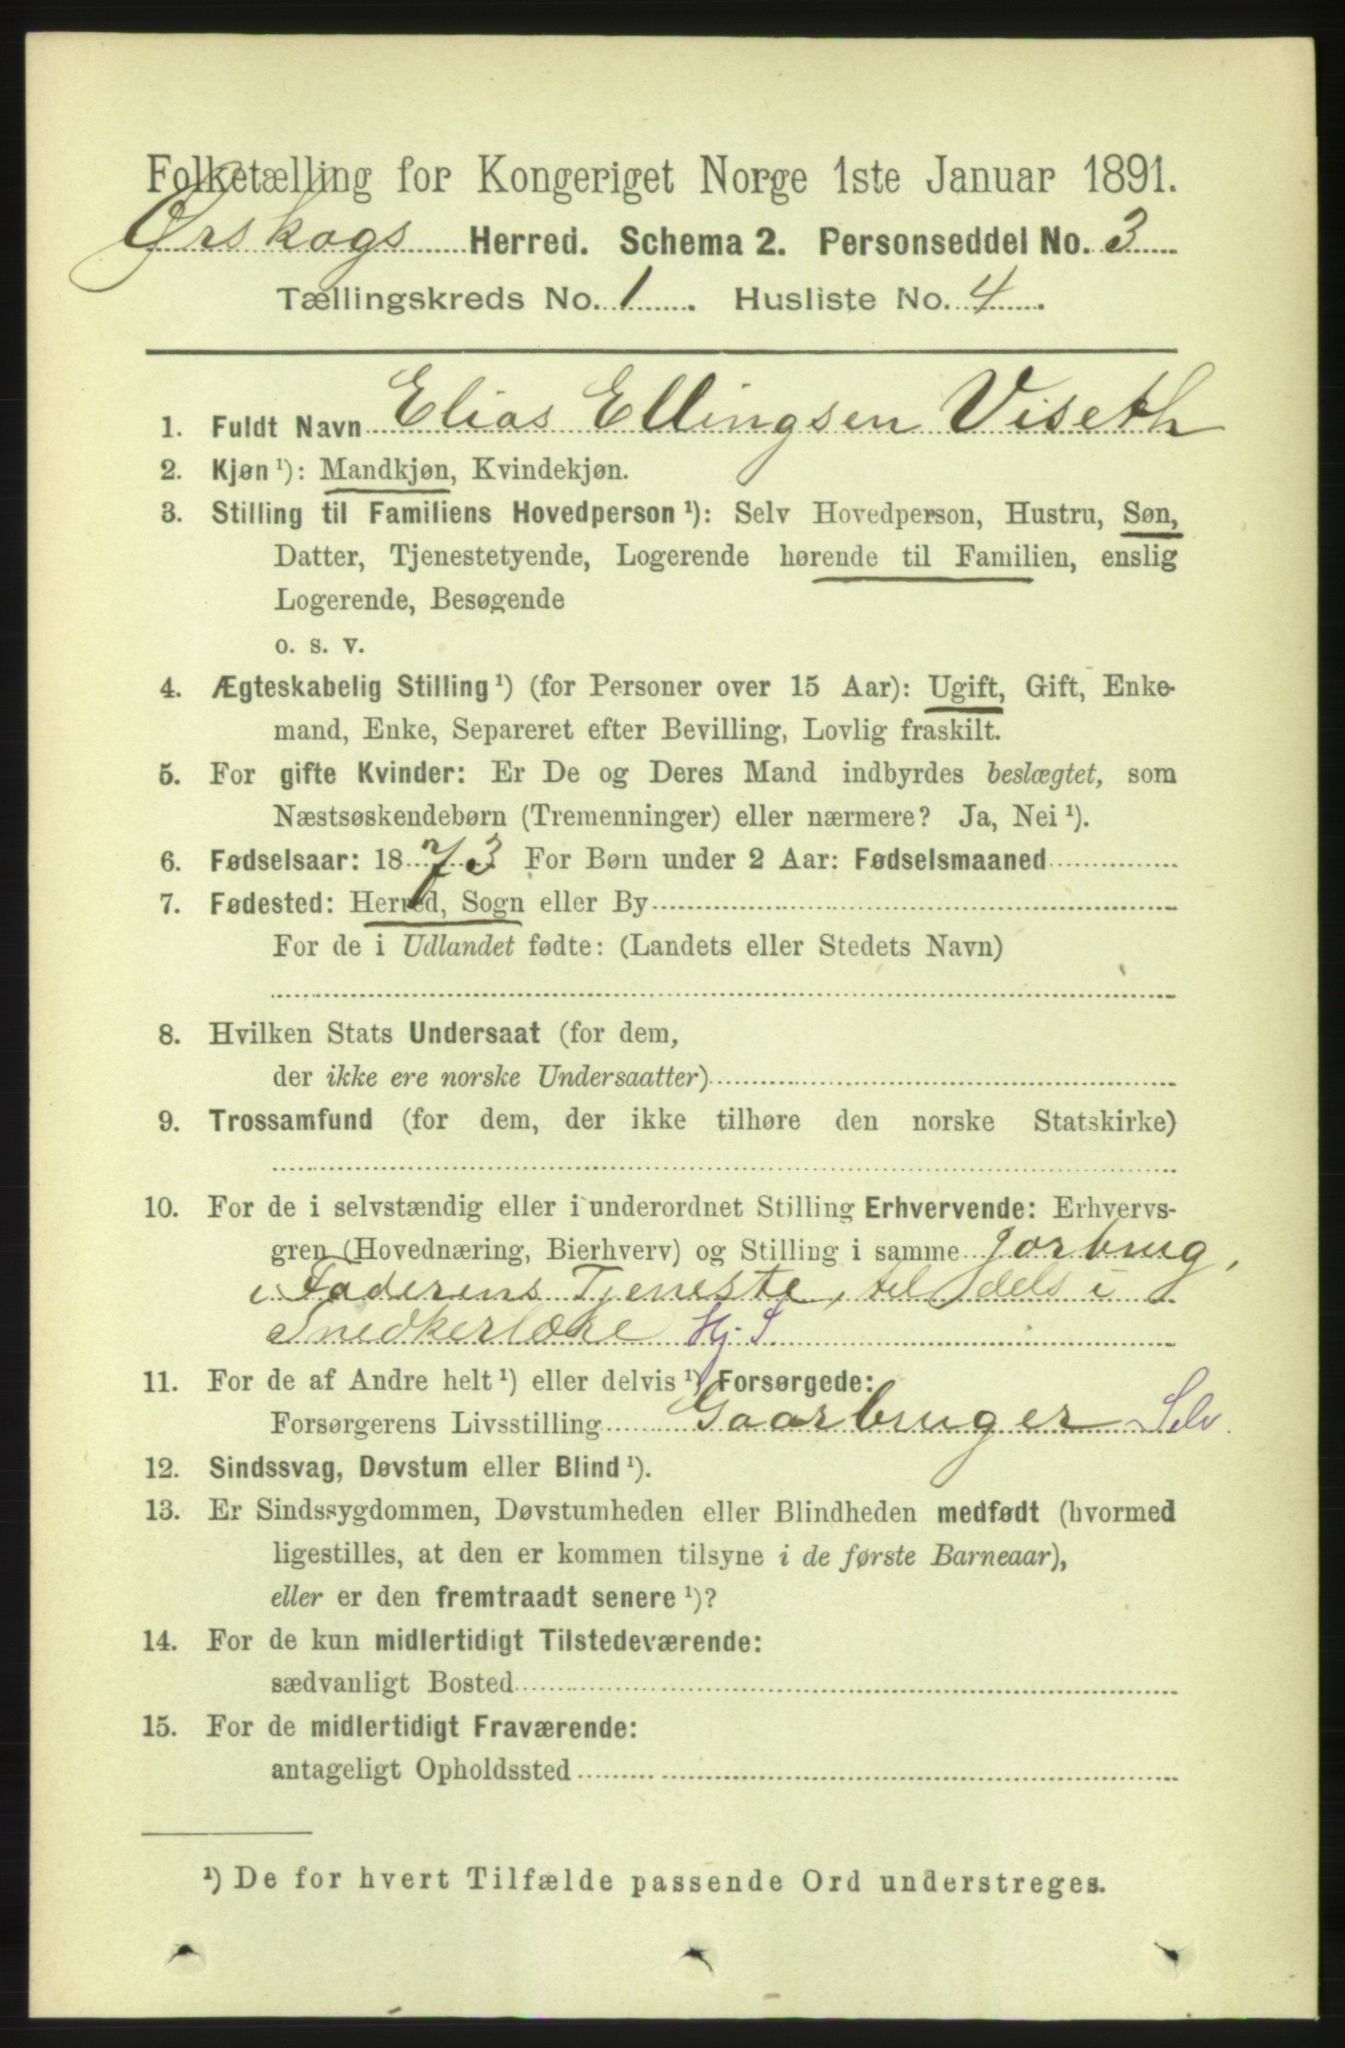 Folketælling for Kongeriget Norge 1ste Januar 1891.
Ørskogs Herred. Schema 2. Personseddel No. 3
Tællingskreds No. 1. Husliste No. 4.
1. Fuldt Navn Elias Ellingsen Viseth
2. Kjøn ¹): Mandkjøn, Kvindekjøn.
3. Stilling til Familiens Hovedperson ¹): Selv Hovedperson, Hustru, Søn,
Datter, Tjenestetyende, Logerende hørende til Familien, enslig
Logerende, Besøgende
o. s. v.
4. Ægteskabelig Stilling ¹) (for Personer over 15 Aar): Ugift, Gift, Enke-
mand, Enke, Separeret efter Bevilling, Lovlig fraskilt.
5. For gifte Kvinder: Er De og Deres Mand indbyrdes beslægtet, som
Næstsøskendebørn (Tremenninger) eller nærmere? Ja, Nei ¹).
6. Fødselsaar: 1873 For Børn under 2 Aar: Fødselsmaaned
7. Fødested: Herred, Sogn eller By
For de i Udlandet fødte: (Landets eller Stedets Navn)
8. Hvilken Stats Undersaat (for dem,
der ikke ere norske Undersaatter)
9. Trossamfund (for dem, der ikke tilhøre den norske Statskirke)
10. For de i selvstændig eller i underordnet Stilling Erhvervende: Erhvervs-
gren (Hovednæring, Bierhverv) og Stilling i samme Jorbrug,
i Faderens Tjeneste, til dels i
Snedkerlære Hj. S
11. For de af Andre helt ¹) eller delvis ¹) Forsørgede:
Forsørgerens Livsstilling Gaarbruger Selv.
12. Sindssvag, Døvstum eller Blind ¹).
13. Er Sindssygdommen, Døvstumheden eller Blindheden medfødt (hvormed
ligestilles, at den er kommen tilsyne i de første Barneaar),
eller er den fremtraadt senere ¹)?
14. For de kun midlertidigt Tilstedeværende:
sædvanligt Bosted
15. For de midlertidigt Fraværende:
antageligt Opholdssted
¹) De for hvert Tilfælde passende Ord understreges.